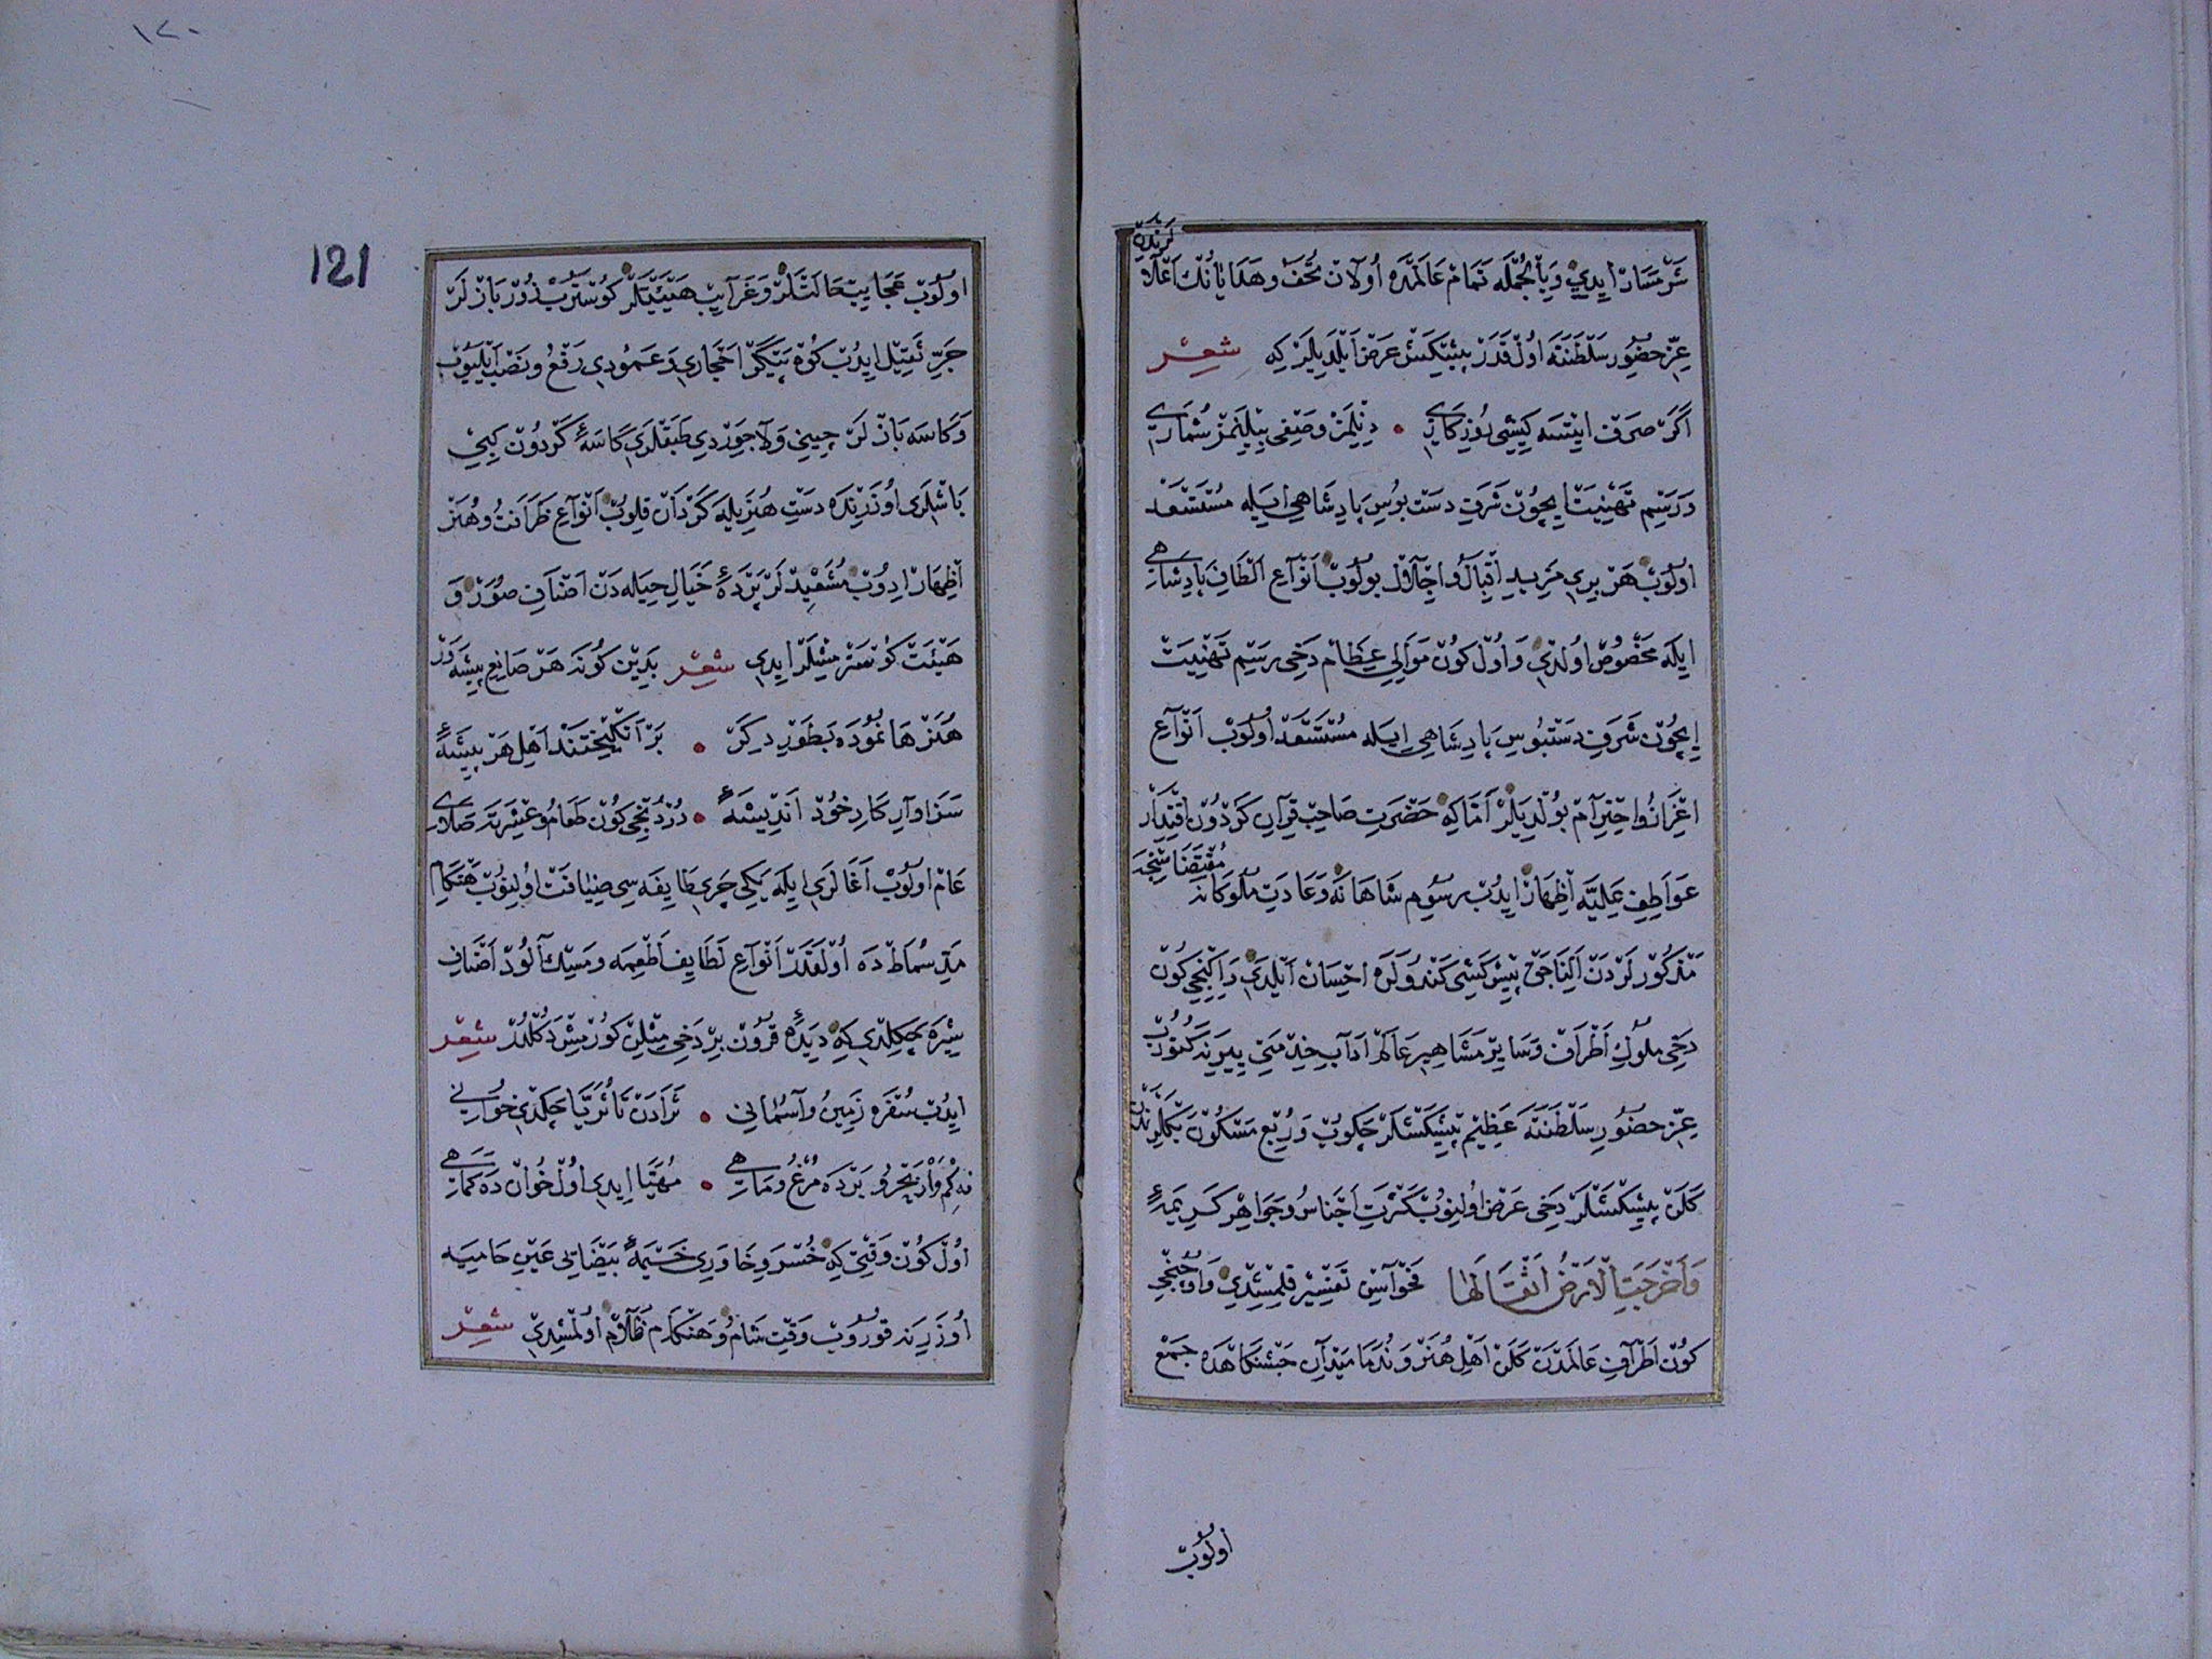 شرمسار ایدي وبالجمله تمام عالمده اولان تحف وهدایانك اعلا
لرندن
عز حضور سلطنته اول قدر پیشکش عرض ایلدیلر که شعر
اگر صرف ایتسه کیشی روزکاری • دینلمز وصفی بیلینمز شماری
ورسم تهنیت ایچون شرف دست بوس پادشاهی ایله مستسعد
اولوب هر بری مزید اقبال و اجلال بولوب انواع الطاف پادشاهی
ایله مخصوص اولدي واول کون موالي عظام دخی رسم تهنیت
ایچون شرف دستبوس پادشاهی ایله مستسعد اولوب انواع
اعزاز و احترام بولدیلر اما که حضرت صاحب قران کردون اقتدار
عواطف علیه اظهار ایدب رسوم شاهانه وعادت ملوکانه
مقتضاسنجه
مذکور لردن الناجق پیشکشی کندولره احسان ایلدي وایکنجي کون
دخی ملوك اطراف وسایر مشاهیر عالم اداب خدمتی یرینه کتوروب
عز حضور سلطنته عظیم پیشکشلر چکوب وربع مسکون بکلرندن
کلن پیشکشلر دخی عرض اولنوب کثرت اجناس وجواهر کریمه
وأخرجت الارض اثقالها فحواسن تفسیر قلمشیدي واوچنجي
کون اطراف عالمدن کلن اهل هنر وندما میدان جشنکاهده جمع
اولوب
١٢٠
121
اولوب عجایب حالتلر وغرایب هیئتلر کوستروب زور بازلر
جر ثقیل ایدب کوه پیکر احجاري وعمودي رفع ونصب ایلیوب
وکاسه بازلر چیني ولاجوردي طبقلري کاسهٔ کردون کبي
باشلري اوزرنده دست هنر یله کردان قلوب انواع ظرافت وهنر
اظهار ادوب مشعبد لر پردهٔ خیال حیله دن اصناف صور و
هیئت کوسترمشلر ایدي شعر بدین کونه هر صانع پیشه ور
هنرها نموده بطور دکر • بر انکیختند اهل هر پیشهٔ
سزاوار کار خود اندیشهٔ • دردنجی کون طعام وعشرته صلای
عام اولوب اغالري ایله یکي چري طایفه سی ضیافت اولنوب هنکام
مد سماط ده اولقدر انواع لطایف اطعمه ومسك آلود اصناف
شیره چکلدي که دیدهٔ قرون بر دخی مثلن کورمش دکلدر شعر
ایدب سفره زمین وآسماني • ثرادن تا ثریا چکدي خواني
نه کم وار بحر و برده مرغ وماهی • مهیا ایدي اول خوان ده کماهی
اول کون وقتي که خسرو خاوري خیمهٔ بیضایی عین حامیه
اوزرینه قوروب وقت شام وهنکام ظلام اولمشیدي شعر